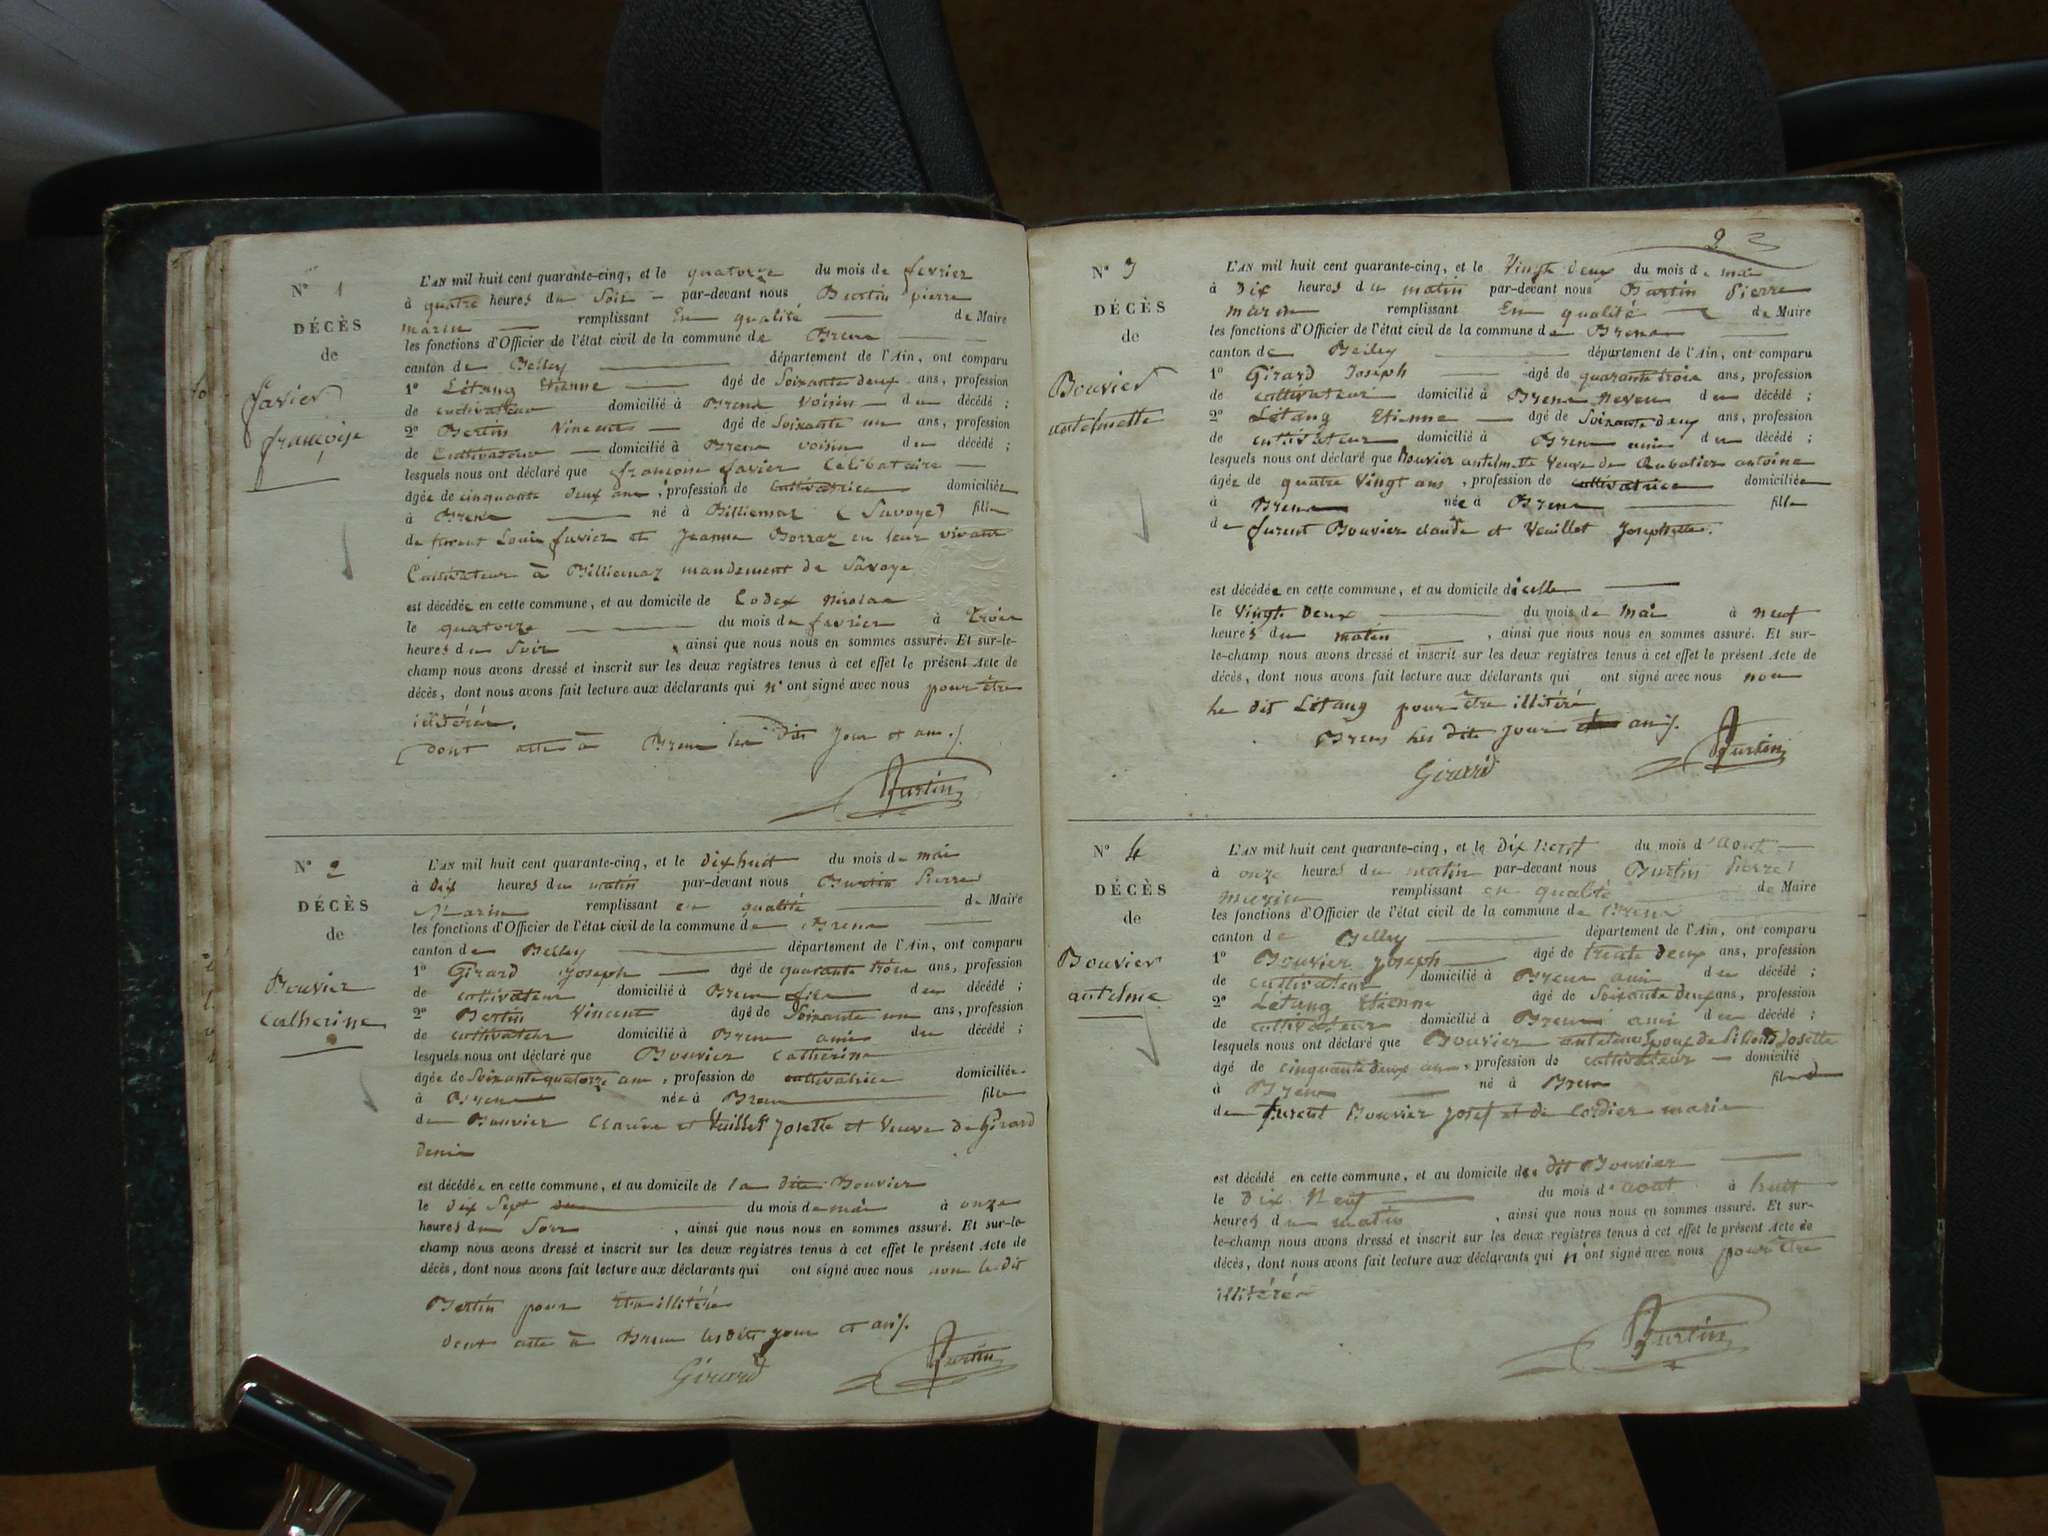 N° 1
DÉCÈS
de
favier
françoise
L'AN mil huit cent quarante-cinq, et le quatorze du mois de fevrier
à quatre heures du Soir par-devant nous Burtin pierre
marin remplissant En qualité de Maire
les fonctions d'Officier de l'état civil de la commune de Brens
canton de Belley département de l'Ain, ont comparu
1° Létang Etienne âgé de Soixante deux ans, profession
de cultivateur domicilié à Brens voisin du décédé ;
2° Bertin Vincent âgé de Soixante un ans, profession
de Cultivateur domicilié à Brens voisin du décédé ;
lesquels nous ont déclaré que françoise favier Celibataire
âgée de cinquante deux ans, profession de cultivatrice domiciliée
à Brens né à Billiemaz (Savoye) fille
de furent Louis favier et Jeanne Borraz en leur vivant
Cultivateur à Billiemaz mandement de Savoye
est décédée en cette commune, et au domicile de Codex Nicolas
le quatorze du mois de fevrier à trois
heures du Soir, ainsi que nous nous en sommes assuré. Et sur-le-
champ nous avons dressé et inscrit sur les deux registres tenus à cet effet le présent Acte de
décès, dont nous avons fait lecture aux déclarants qui n'ont signé avec nous pour être
illitérés.
dont acte à Brens les dits jour et an
Burtin
N° 2
DÉCÈS
de
Bouvier
Catherine
L'AN mil huit cent quarante-cinq, et le dix huit du mois de mai
à dix heures du matin par-devant nous Burtin Pierre
Marin remplissant en qualité de Maire
les fonctions d'Officier de l'état civil de la commune de Brens
canton de Belley département de l'Ain, ont comparu
1° Girard Joseph âgé de quarante trois ans, profession
de cultivateur domicilié à Brens fils du décédé ;
2° Bertin Vincent âgé de Soixante un ans, profession
de cultivateur domicilié à Brens ami du décédé ;
lesquels nous ont déclaré que Bouvier Catherine
âgée de Soixante quatorze ans, profession de cultivatrice domiciliée
à Brens née à Brens fille
de Bouvier Claude et Veuillet Josette et Veuve de Girard
denis
est décédée en cette commune, et au domicile de la dite Bouvier
le dix Sept du mois de mai à onze
heures du Soir, ainsi que nous nous en sommes assuré. Et sur-le-
champ nous avons dressé et inscrit sur les deux registres tenus à cet effet le présent Acte de
décès, dont nous avons fait lecture aux déclarants qui ont signé avec nous non le dit
Bertin pour être illitéré
dont acte à Brens les dits jour et an
Girard Burtin
2
N° 3
DÉCÈS
de
Bouvier
antelmette
L'AN mil huit cent quarante-cinq, et le Vingt deux du mois de mai
à dix heures du matin par-devant nous Burtin Pierre
marin remplissant En qualité de Maire
les fonctions d'Officier de l'état civil de la commune de Brens
canton de Belley département de l'Ain, ont comparu
1° Girard Joseph âgé de quarante trois ans, profession
de cultivateur domicilié à Brens Neveu du décédé ;
2° Létang Etienne âgé de Soixante deux ans, profession
de cultivateur domicilié à Brens ami du décédé ;
lesquels nous ont déclaré que Bouvier antelmette Veuve de Rubatier antoine
âgée de quatre Vingt ans, profession de cultivatrice domiciliée
à Brens née à Brens fille
de furent Bouvier claude et Veuillet Josephette.
est décédée en cette commune, et au domicile dicelle
le Vingt deux du mois de Mai à neuf
heures du matin, ainsi que nous nous en sommes assuré. Et sur-
le-champ nous avons dressé et inscrit sur les deux registres tenus à cet effet le présent Acte de
décès, dont nous avons fait lecture aux déclarants qui ont signé avec nous non
le dit Létang pour être illitéré
Brens les dits jour an
Girard Burtin
N° 4
DÉCÈS
de
Bouvier
antelme
L'AN mil huit cent quarante-cinq, et le Dix Neuf du mois d'aout
à onze heures du matin par-devant nous Burtin Pierre
marin remplissant en qualité de Maire
les fonctions d'Officier de l'état civil de la commune de Brens
canton de Belley département de l'Ain, ont comparu
1° Bouvier Joseph âgé de trente deux ans, profession
de cultivateur domicilié à Brens ami du décédé ;
2° Létang Etienne âgé de Soixante deux ans, profession
de cultivateur domicilié à Brens ami du décédé ;
lesquels nous ont déclaré que Bouvier antelme Epoux de Josette
âgé de cinquante deux ans, profession de cultivateur domicilié
à Brens né à Brens fils
de furent Bouvier Josef et de Cordier marie
est décédé en cette commune, et au domicile du dit Bouvier
le Dix Neuf du mois d'aout à huit
heures du matin, ainsi que nous nous en sommes assuré. Et sur-
le-champ nous avons dressé et inscrit sur les deux registres tenus à cet effet le présent Acte de
décès, dont nous avons fait lecture aux déclarants qui n'ont signé avec nous pour être
illitérés
Burtin